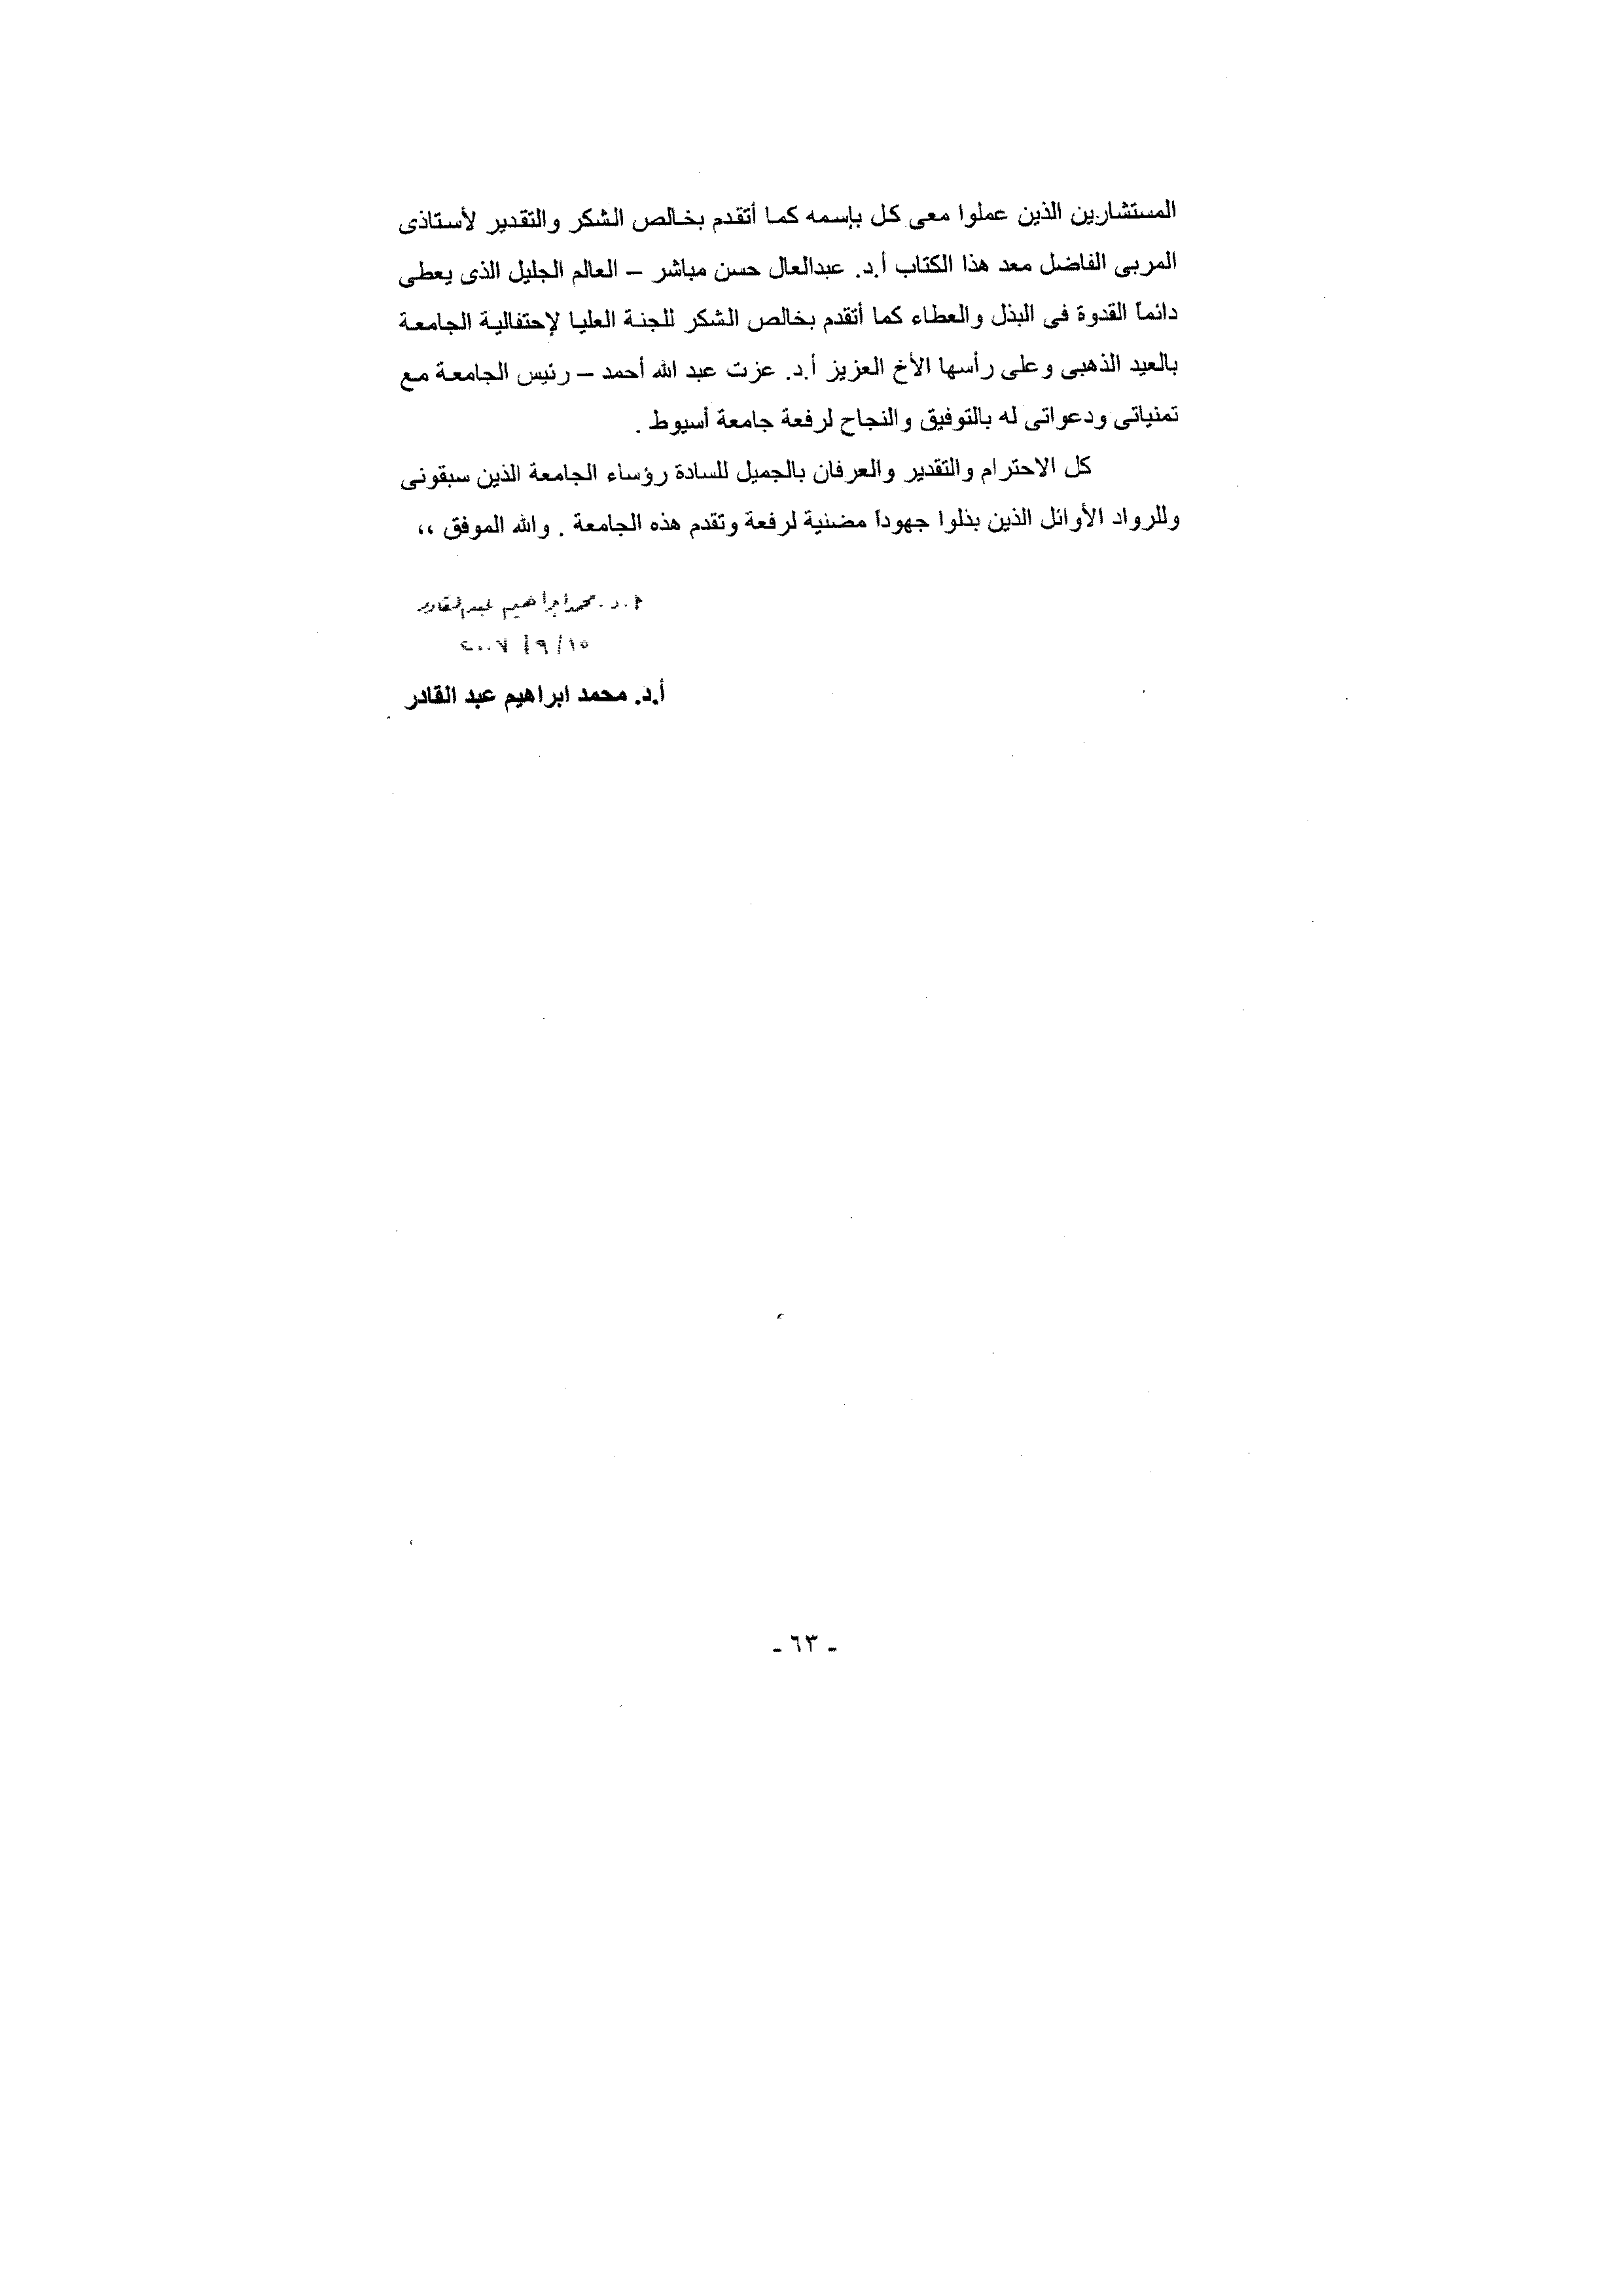 المستشارين الذين عملوا معى كل بإسمه كما أتقدم بخالص الشكر والتقدير لأستاذى
المربى الفاضل معد هذا الكتاب أ.د. عبدالعال حسن مباشر – العالم الجليل الذى يعطى
دائماً القدوة فى البذل والعطاء كما أتقدم بخالص الشكر للجنة العليا لإحتفالية الجامعة
بالعيد الذهبى وعلى رأسها الأخ العزيز أ.د. عزت عبد الله أحمد – رئيس الجامعة مع
تمنياتى ودعواتى له بالتوفيق والنجاح لرفعة جامعة أسيوط .
كل الاحترام والتقدير والعرفان بالجميل للسادة رؤساء الجامعة الذين سبقونى
وللرواد الأوائل الذين بذلوا جهوداً مضنية لرفعة وتقدم هذه الجامعة . والله الموفق ،،
أ.د. محمد إبراهيم عبد القادر
١٥/ ٩/ ٢٠٠٧
أ.د. محمد ابراهيم عبد القادر
- ٦٣ -